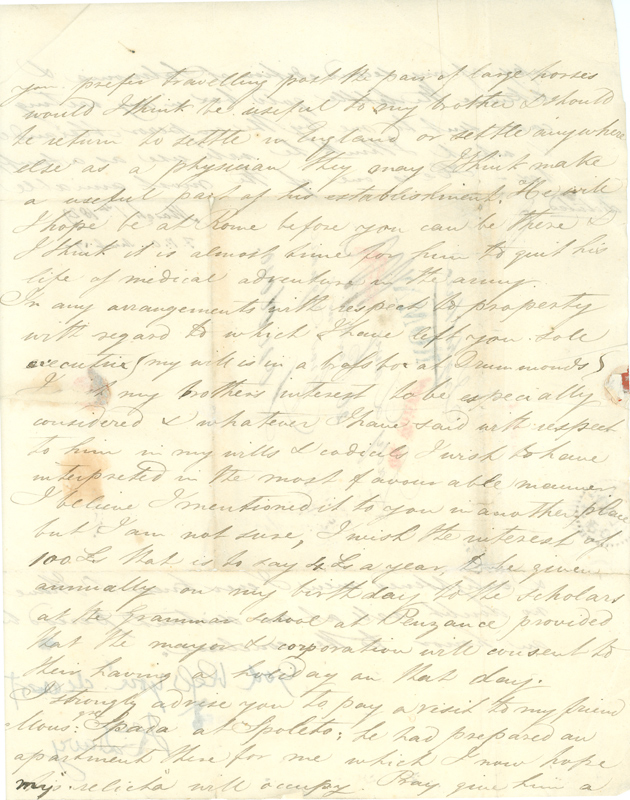 you prefer travelling post the pair of large horses
would I think be useful to my brother & should
he return to settle in England or settle anywhere
else as a physician they may I think make
a useful part of his establishment. He will
I hope be at Rome before you can be there &
I think it is almost time for him to quit his
life of medical adventure in the army.
In any arrangements with respect to property
with regard to which I have left you sole
executrix (my will is in a brass box at Drummonds)
I wish my brothers interest to be especially
considered & whatever I have said with respect
to him in my wills & codicils I wish to have
interpreted in the most favourable manner
I believe I mentioned it to you in another place
but I am not sure, I wish the interest of
100 £s that is to say 4 £s a year, to be given
annually on my birth day to the scholars
at the Grammar School at Penzance provided
that the mayor & corporation will consent to
their having a holiday on that day.
I strongly advise you to pay a visit to my friend
Mons:gr Spada at Spoleto; he had prepared an
apartment there for me which I now hope
my "relicta" will occupy. Pray give him a